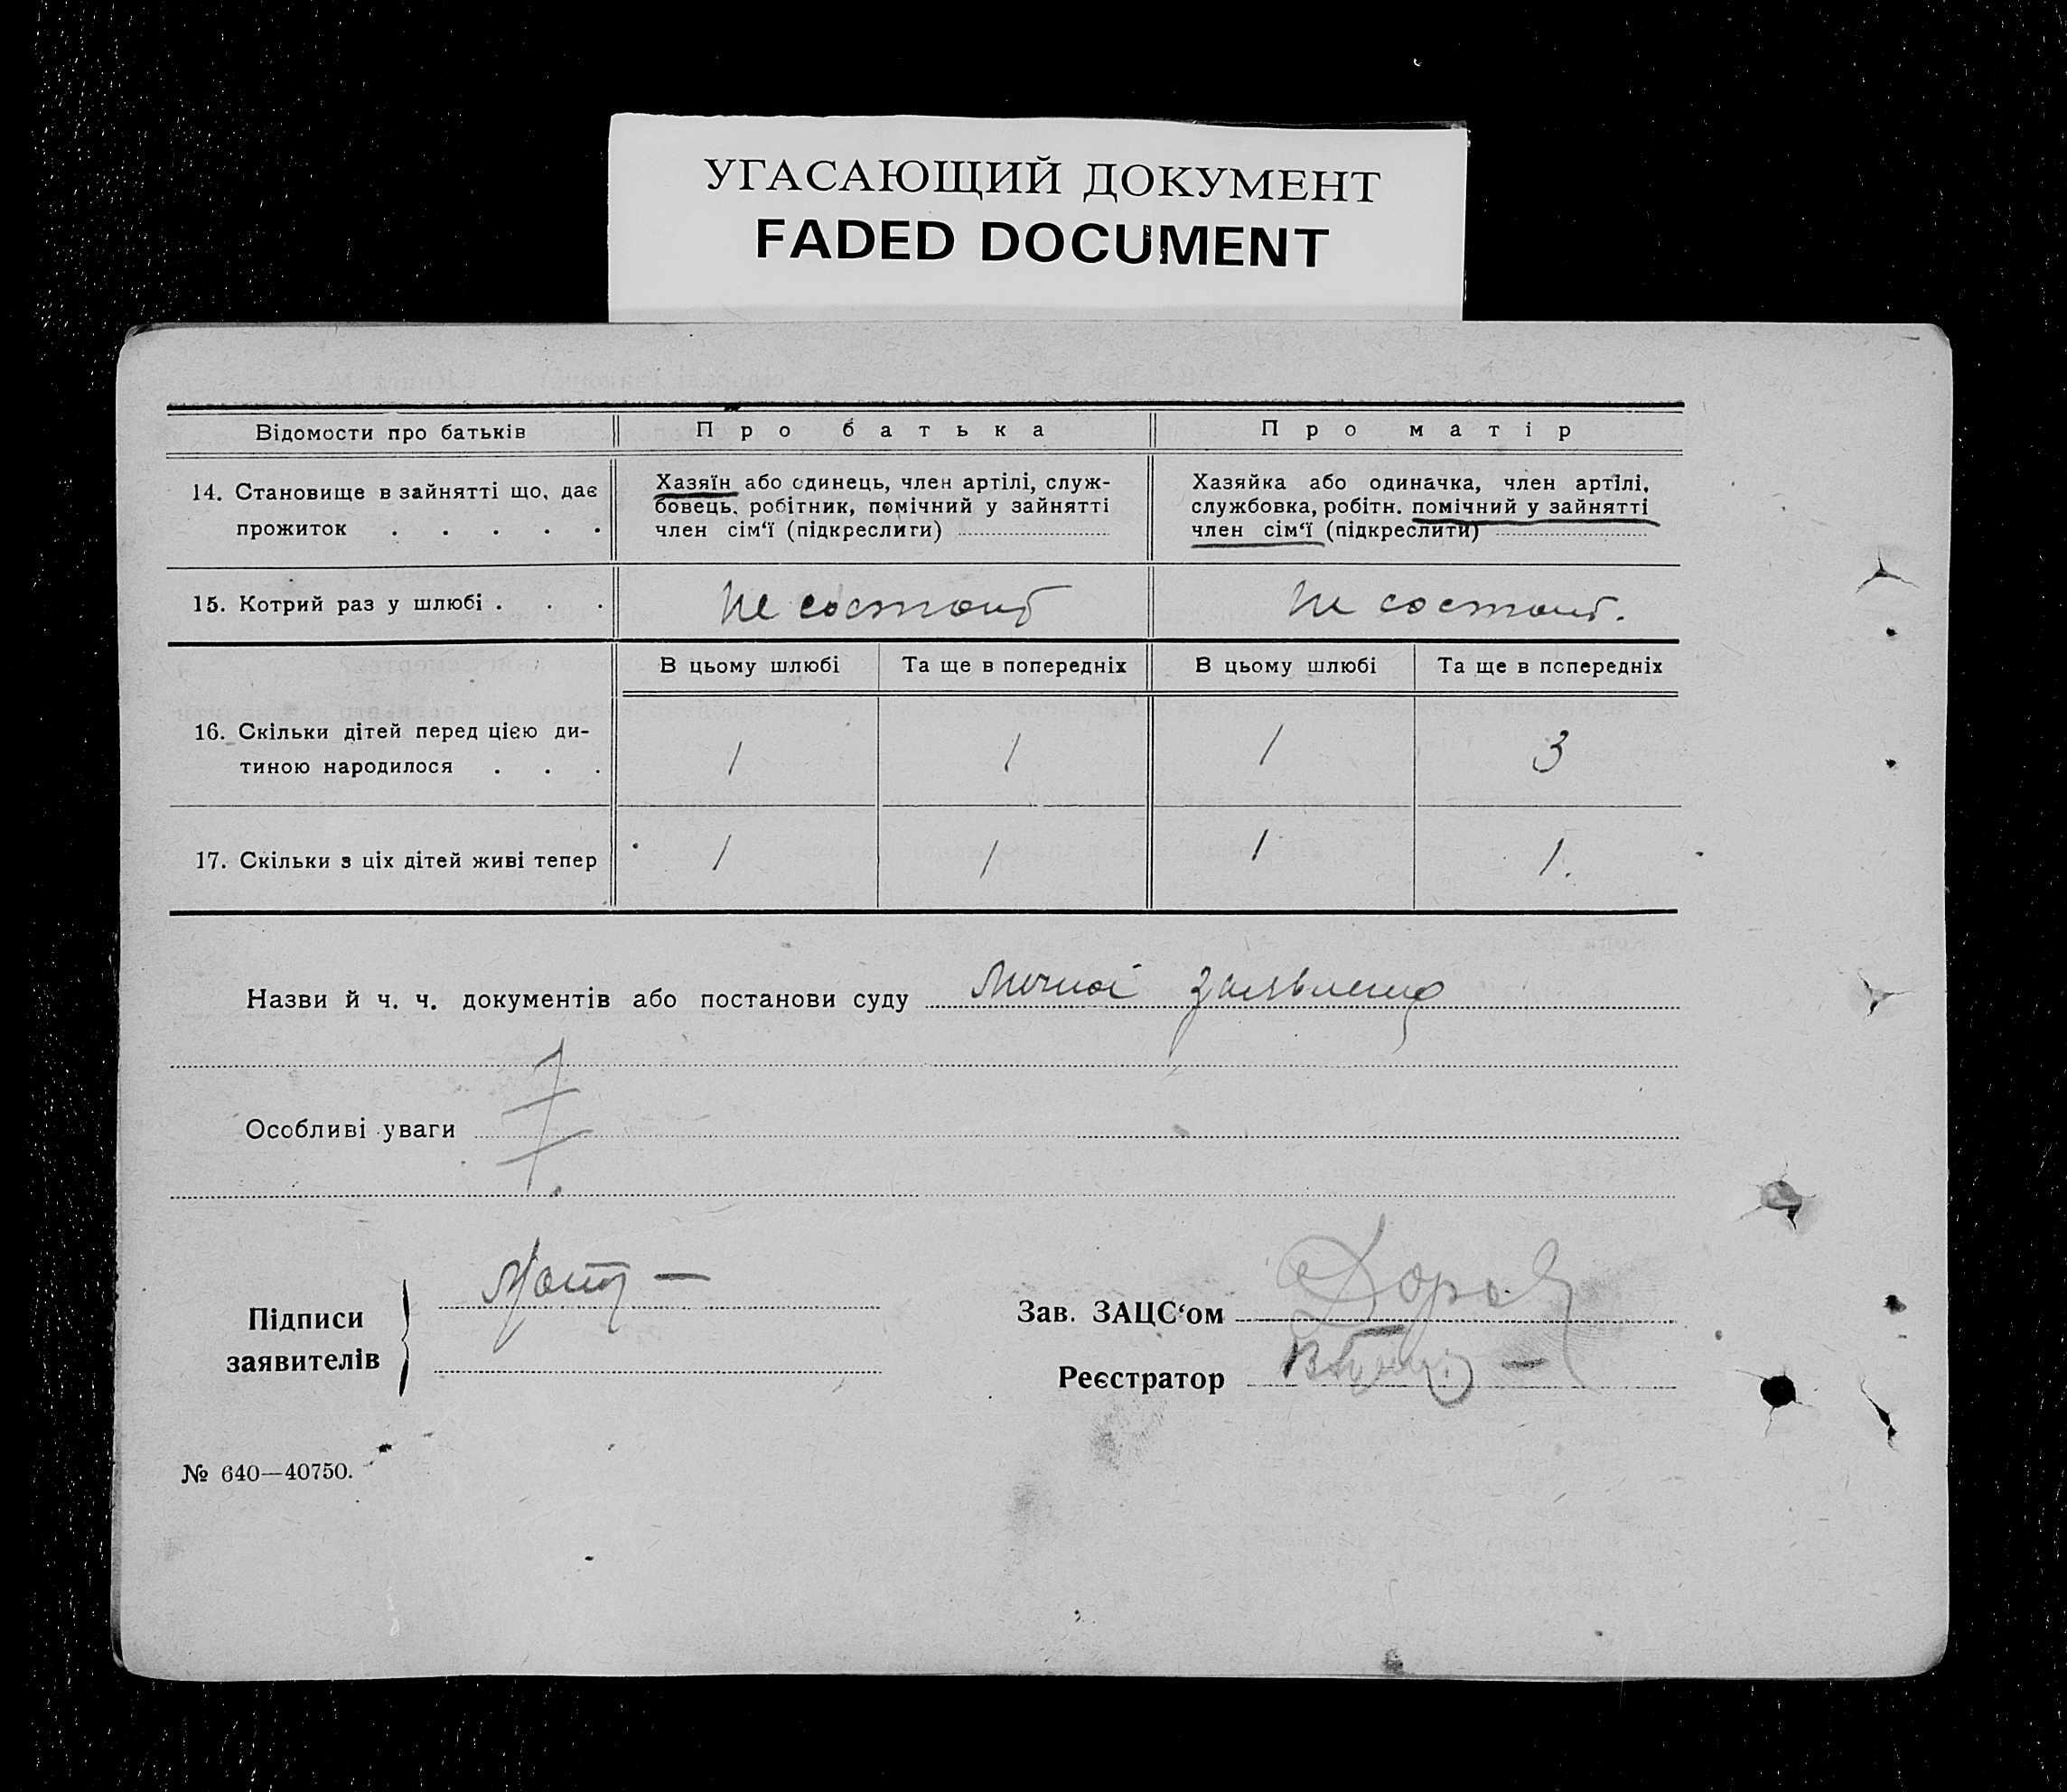 УГАСАЮЩИЙ ДОКУМЕНТ
FADED DOCUMENT
Відомости про батьків
Про батька
Про матір
14. Становище в зайнятті що, дає
прожиток . . . . .
Хазяїн або одинець, член артілі, служ-
бовець, робітник, помічний у зайнятті
член сім‘ї (підкреслити)
Хазяйка або одиначка, член артілі,
службовка, робітн. помічний у зайнятті
член сім‘ї (підкреслити)
15. Котрий раз у шлюбі . . .
не состоит
не состоит.
В цьому шлюбі
Та ще в попередніх
В цьому шлюбі
Та ще в попередніх
16. Скільки дітей перед цією ди-
тиною народилося . . .
1
1
1
3
17. Скільки з ціх дітей живі тепер
1
1
1
1.
Назви й ч. ч. документів або постанови суду
Особливі уваги
Підписи
заявителів
Зав. ЗАЦС‘ом
Реєстратор
№ 640—40750.